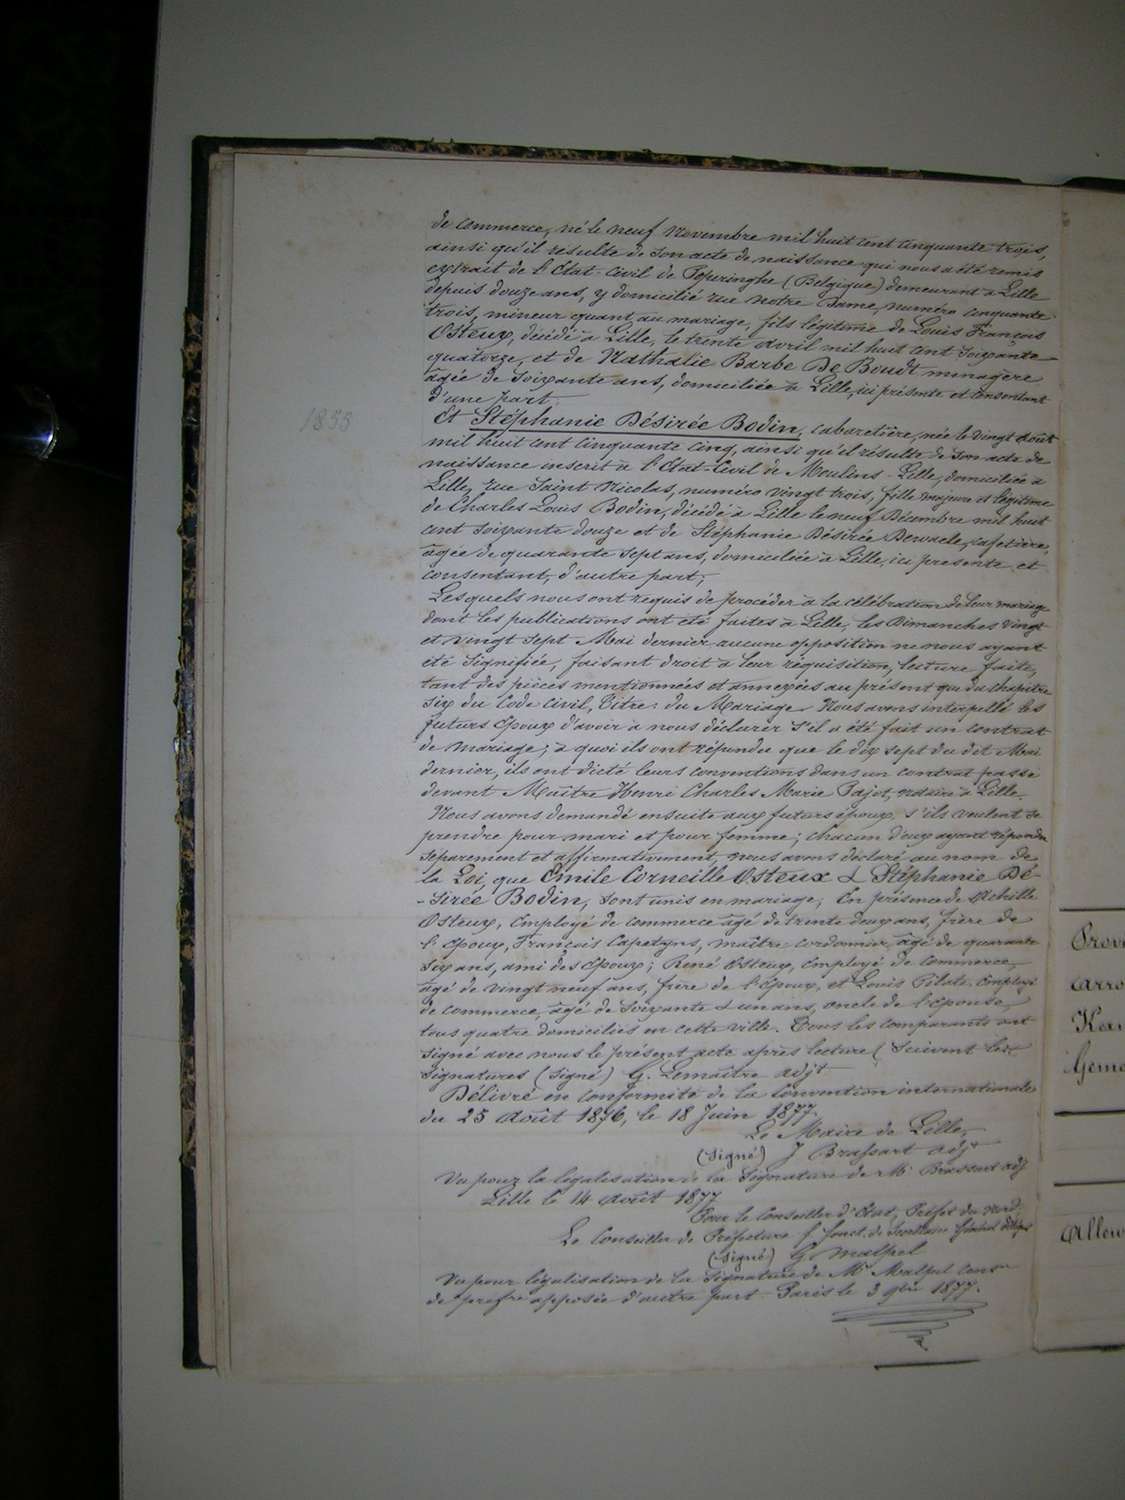 de commerce, né le neuf Novembre mil huit cent cinquante trois,
ainsi qu'il résulte de son acte de naissance qui nous a été remis
extrait de l'Etat-Civil de Popuringhe (Belgique) demeurant à Lille
depuis douze ans, y domicilié rue Notre Dame, numéro cinquante
trois, mineur quant au mariage, fils légitime de Louis François
Osteux, décédé à Lille, le trente Avril mil huit cent soixante
quatorze, et de Nathalie Barbe De Boudt ménagère
âgée de soixante ans, domiciliée à Lille, ici présente et consentant
d'une part.
1855
Et Stéphanie Désirée Bodin, cabaretière, née le vingt Août
mil huit cent cinquante cinq, ainsi qu'il résulte de son acte de
naissance inscrit à l'Etat-Civil de Moulins-Lille, domiciliée à
Lille, rue Saint Nicolas, numéro vingt trois, fille majeure et légitime
de Charles Louis Bodin, décédé à Lille le neuf Décembre mil huit
cent soixante douze et de Stéphanie Désirée Dewaele, cafetière,
âgée de quarante sept ans, domiciliée à Lille, ici présente et
consentant, d'autre part,
Lesquels nous ont requis de procéder à la célébration de leur mariage
dont les publications ont été faites à Lille, les Dimanches vingt
et vingt sept Mai dernier, aucune opposition ne nous ayant
été signifiée, faisant droit à leur réquisition, lecture faite,
tant des pièces mentionnées et annexées au présent que du chapitre
six du Code Civil, Titre: du Mariage. Nous avons interpellé les
futurs époux d'avoir à nous déclarer s'il a été fait un contrat
de mariage; à quoi ils ont répondu que le dix sept du dit Mai
dernier, ils ont dicté leurs conventions dans un contrat passé
devant Maître Henri Charles Marie Pajot, notaire à Lille.
Nous avons demandé ensuite aux futurs époux, s'ils veulent se
prendre pour mari et pour femme; chacun d'eux ayant répondu
séparement et affirmativement, nous avons déclaré au nom de
la Loi, que Emile Corneille Osteux & Stéphanie Dé-
-sirée Bodin, sont unis en mariage; En présence de Achille
Osteux, employé de commerce âgé de trente deux ans, frère de
l'époux, François Capetyns, maître cordonnier, âgé de quarante
six ans, ami des époux; René Osteux, employé de commerce,
âgé de vingt neuf ans, frère de l'époux, et Louis Pilate, employé
de commerce, âgé de soixante & un ans, oncle de l'épouse,
tous quatre domiciliés en cette ville. Tous les comparants ont
signé avec nous le présent acte après lecture (suivent les
signatures (signé) G. Lemaître adjt
Délivré en conformité de la convention internationale
du 25 Août 1876, le 18 Juin 1877.
Le Maire de Lille,
(signé) J Brassart adjt
Vu pour la légalisation de la signature de Mr Brassart adj
Lille le 14 Août 1877
Pour le Conseiller d'Etat, Préfet du Nord
Le Conseiller de Préfecture f. fonct. de Secrétaire Général délégué
(signé) G. Malpel
Vu pour légalisation de la signature de Mr Malpel Consr
de préfre apposée d'autre part Paris le 3 9bre 1877.
Prov
Arro
Kan
Geme
Allew